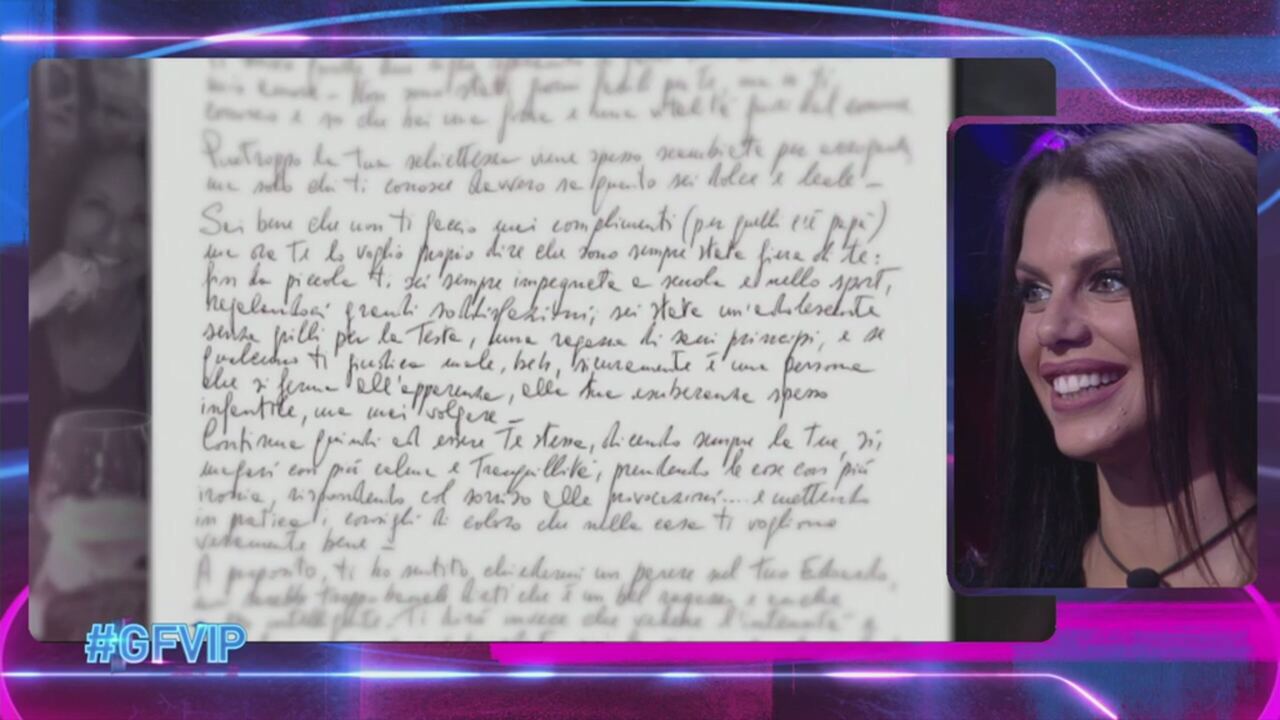 mio amore – Non sono stati giorni facili per te, ma io ti
conosco e so che hai una forza e una vitalità fuori dal comune
Purtroppo la tua schiettezza viene spesso scambiata per arroganza,
ma solo chi ti conosce davvero sa quanto sei dolce e leale –
Sai bene che non ti faccio mai complimenti (per quelli c'è papà)
ma ora te lo voglio proprio dire che sono sempre stata fiera di te:
fin da piccola ti sei sempre impegnata a scuola e nello sport,
regalandoci grandi soddisfazioni; sei stata un'adolescente
senza grilli per la testa, una ragazza di sani principi, e se
qualcuno ti giudica male, beh, sicuramente è una persona
che si ferma all'apparenza, alla tua esuberanza spesso
infantile, ma mai volgare –
Continua quindi ad essere te stessa, dicendo sempre la tua, sì,
magari con più calma e tranquillità, prendendo le cose con più
ironia, rispondendo col sorriso alle provocazioni.... e mettendo
in pratica i consigli di coloro che nella casa ti vogliono
veramente bene –
A proposito, ti ho sentito chiedermi un parere sul tuo Edoardo,
che è un bel ragazzo e anche
intelligente. Ti dirò invece che vedere l'intensità
#GFVIP